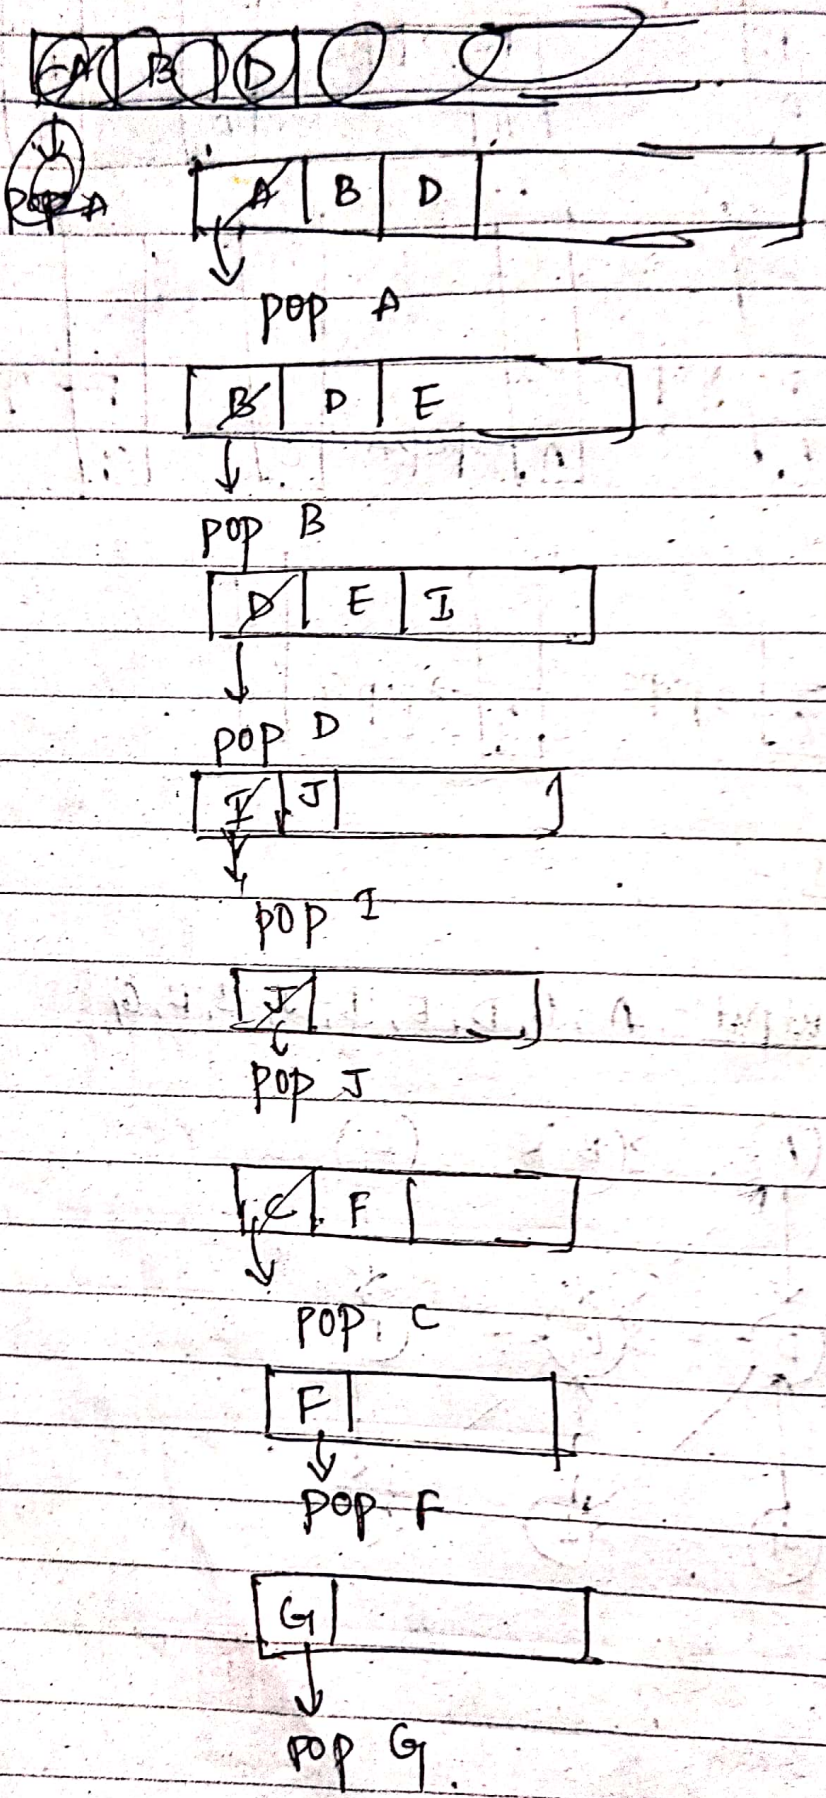 A B D
POP A
A B D
POP A
B D E
POP B
D E I
POP D
I J
POP I
J
POP J
C F
POP C
F
POP F
G
POP G.